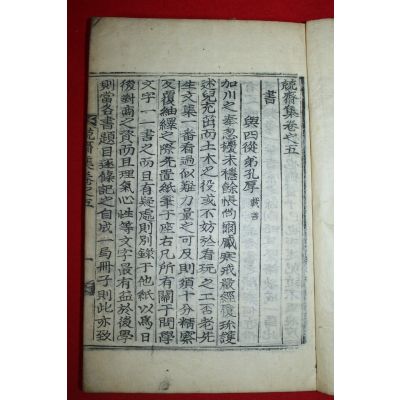 競齋集卷之五
書
與四從弟孔厚 載喜
加川之奉忽擾未穩餘悵尙爾臧寒戒嚴經履珎護
述兒充苗而土木之役或不妨於看玩之工否老先
生文集一番看過似難力量之可及則須十分精察
反覆紬繹之際先置紙筆于座右凡所有關于問學
文字一一書之而且有疑處則別錄于他紙以爲日
後對商之資而且理氣心性等文字最有益於後學
則當名書題目逐條記之自成一局冊子則此亦致